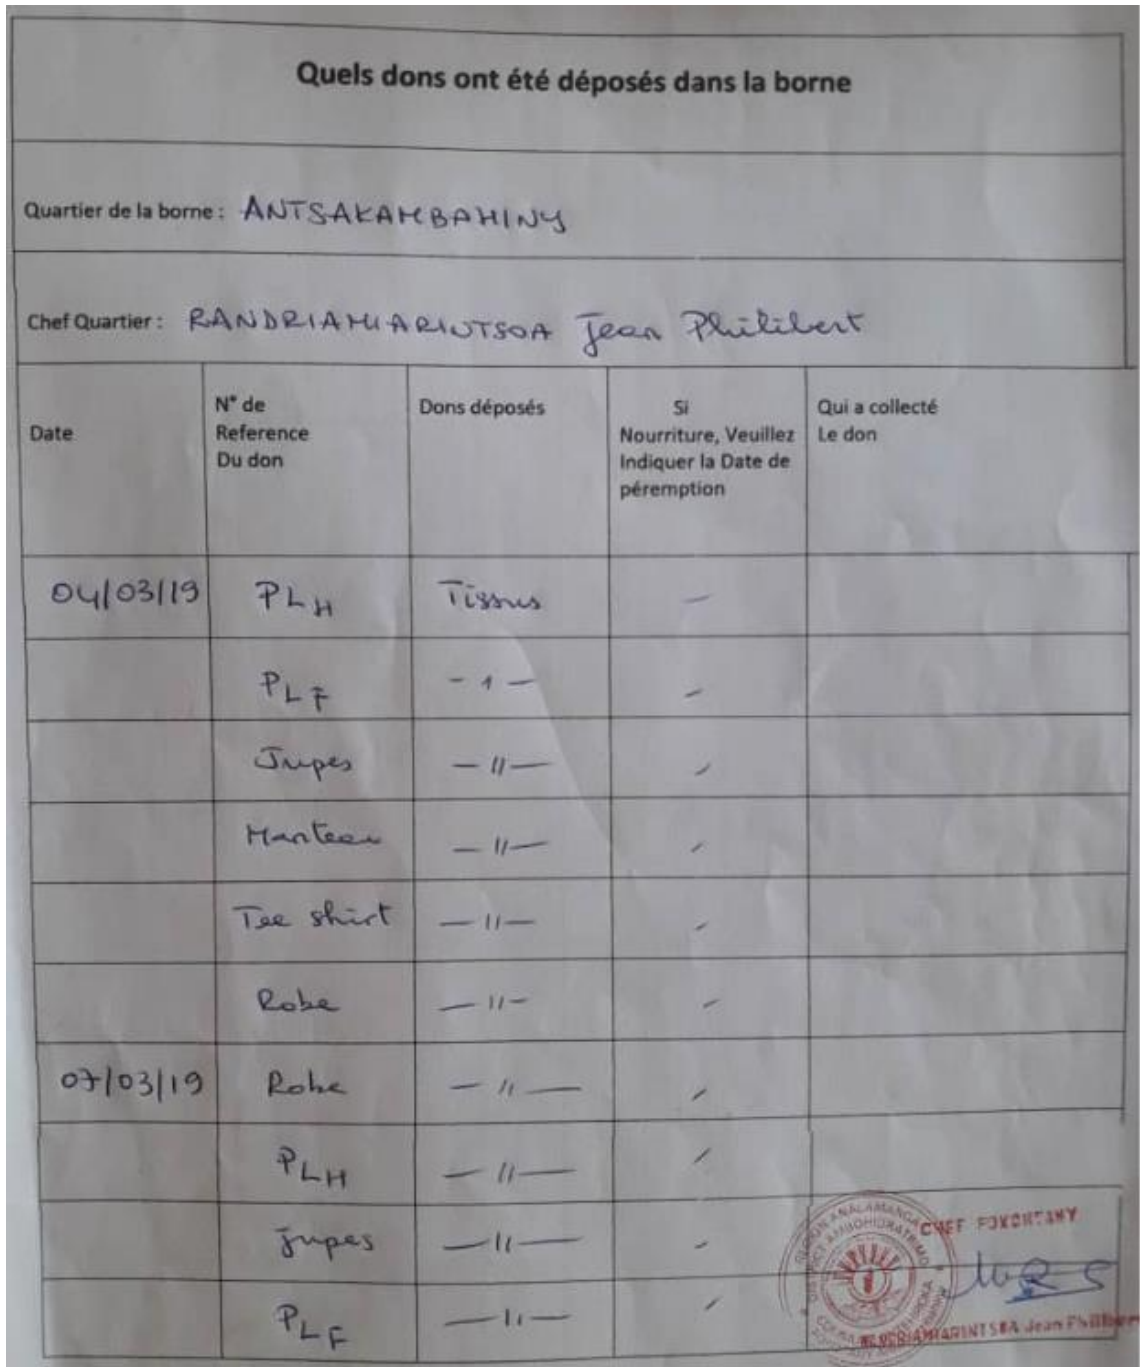 Quels dons ont été déposés dans la borne
Quartier de la borne : ANTSAKAMBAHINY
Chef Quartier : RANDRIAMIARINTSOA Jean Philibert
Date
N° de
Reference
Du don
Dons déposés
Si
Nourriture, Veuillez
Indiquer la Date de
péremption
Qui a collecté
Le don
04/03/19 PLH Tissus -
PLF - 1 - -
Jupes - 11 - -
Manteau - 11 - -
Tee shirt - 11 - -
Robe - 11 - -
07/03/19 Robe - 11 - -
PLH - 11 - -
jupes - 11 - -
PLF - 11 - -
REGION ANALAMANGA
DISTRICT AMBOHIDRATRIMO
CHEF FOKONTANY
RANDRIAMIARINTSOA Jean Philibert